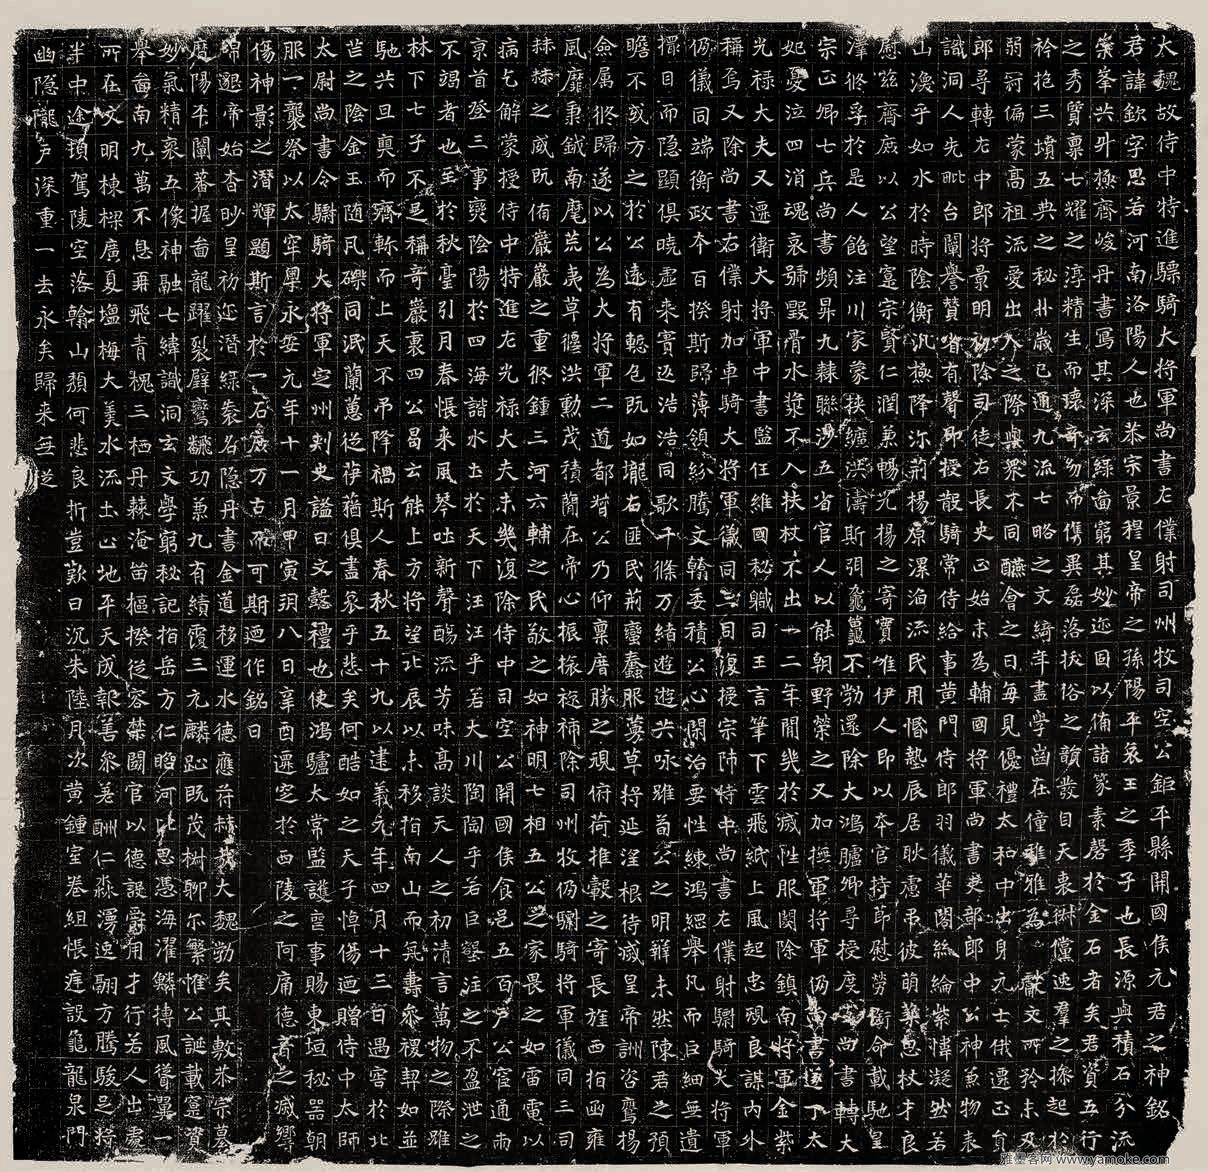 大魏故侍中特進驃騎大將軍尚書左僕射司州牧司空公鉅平縣開國侯元君之神銘
君諱欽字思若河南洛陽人也恭宗景穆皇帝之孫陽平哀王之季子也長源與積石分流
崇峯共升極齊峻丹書寫其深玄綠啚窮其妙迹固以備諸篆素磬於金石者矣君資五行
之秀質稟七耀之淳精生而瓌奇幼而儁異磊落拔俗之韻發自天衷倜儻逸羣之操起於
衿抱三墳五典之秘卝歲已通九流七略之文綺年盡學齒在僮稚雅為獻文所矜未及
弱冠偏蒙高祖流愛出入之際與眾不同醼會之日每見優禮太和中出身元士俄遷正員
郎尋轉左中郎將景明初除司徒右長史正始末為輔國將軍尚書吏部郎中公神兼物表
識洞人先毗台闡譽贊省有聲即授散騎常侍給事黃門侍郎羽儀華閣絲綸紫幃凝然若
山渙乎如水於時陰衡汎極降沴荊楊原濕洎流民用惛墊辰居耿慮弔彼萌華思杖才良
慰茲齊庶以公望富宗賢仁潤兼暢光揚之寄實唯伊人即以本官持節慰勞銜命載馳皇
澤俢孚於是人飽注川家蒙挾纊洪濤斯弭龜鼉不勃還除大鴻臚卿尋授度支尚書轉大
宗正卿七兵尚書頻昇九棘聯涉五省官人以能朝野榮之又加撫軍將軍仍尚書遂丁太
妃憂泣四消魂哀號毀骨水漿不入扶杖不出一二年間幾於滅性服闋除鎮南將軍金紫
光祿大夫又遷衛大將軍中書監任維國秘職司王言筆下雲飛紙上風起忠規良謀內外
稱焉又除尚書右僕射加車騎大將軍儀同三司復授宗師侍中尚書左僕射驃騎大將軍
仍儀同端衡政本百揆斯歸薄領紛騰文翰委積公心閑治要性練鴻綱舉凡而巨細無遺
擇日而隱顯俱曉虛來實返浩浩同歌千條万緒遊遊共咏雖荀公之明辯未然陳君之預
瞻不或方之於公遠有慙色既如壠右匪民荊蠻蠢服蔓草將延淫根待滅皇帝訓咨鷹揚
僉屬俢歸遂以公為大將軍二道都督公乃仰稟厝勝之規俯荷推轂之寄長旌西指函雍
風靡秉鉞南麾荒夷草偃洪勳茂積簡在帝心振振除司州牧仍驃騎將軍儀同三司
赫赫之威既侑巖巖之重俢鍾三河六輔之民敬之如神明七相五公之家畏之如雷電以
病乞解蒙授侍中特進左光祿大夫未幾復除侍中司空公開國侯食邑五百戶公官通兩
京首登三事爕陰陽於四海諧水土於天下汪汪乎若大川陶陶乎若巨壑注之不盈泄之
不竭者也至於秋臺引月春悵來風琴吐新聲醑流芳味高談天人之初清言萬物之際雖
林下七子不足稱奇巖裏四公曷云能上方將望北辰以未移指南山而齊壽黎稷契如並
馳共旦奭而齊軫而上天不弔降禍斯人春秋五十九以建義元年四月十三日遇害於北
芒之陰金玉随凡礫同泯蘭蕙從葭蕕俱盡哀乎悲矣何酷如之天子悼傷迺贈侍中太師
太尉尚書令驃騎大將軍定州刺史謚曰文懿禮也使鴻臚太常監護喪事賜東垣秘器朝
服一襲祭以太窂粵永安元年十一月甲寅朔八日辛酉遷窆於西陵之阿痛德音之滅響
傷神影之潛輝題斯言於一石庶万古而可期迺作銘曰
綿邈帝始杳眇皇初迩潛綠袠名隱丹書金道移運水德應苻赫哉大魏勃矣其敷恭宗墓
曆陽平闡蕃握啚龍躍裂壁鸞飜功兼九有績霞三元麟趾既茂樹聊尓繁惟公誕載寔資
妙氣精裹五像神融七緯識洞玄文學窮秘記指岳方仁瞪河比思憑海濯鱗搏風聳翼一
舉啚南九萬不息再飛青槐三栖丹棘淹留樞揆從容禁闥官以德設爵用才行若人出處
所在文明棟樑廣夏塩梅大羹水流土止地平天成報善參差酬仁淼漫逸翮方騰駿足將
半中途頓駕陵空落翰山頹何悲良折豈歎日沉朱陸月次黃鍾室卷組悵庭設龜龍泉門
幽隱隴戶深重一去永矣歸來無從
雅墨客网 www.yamoke.com